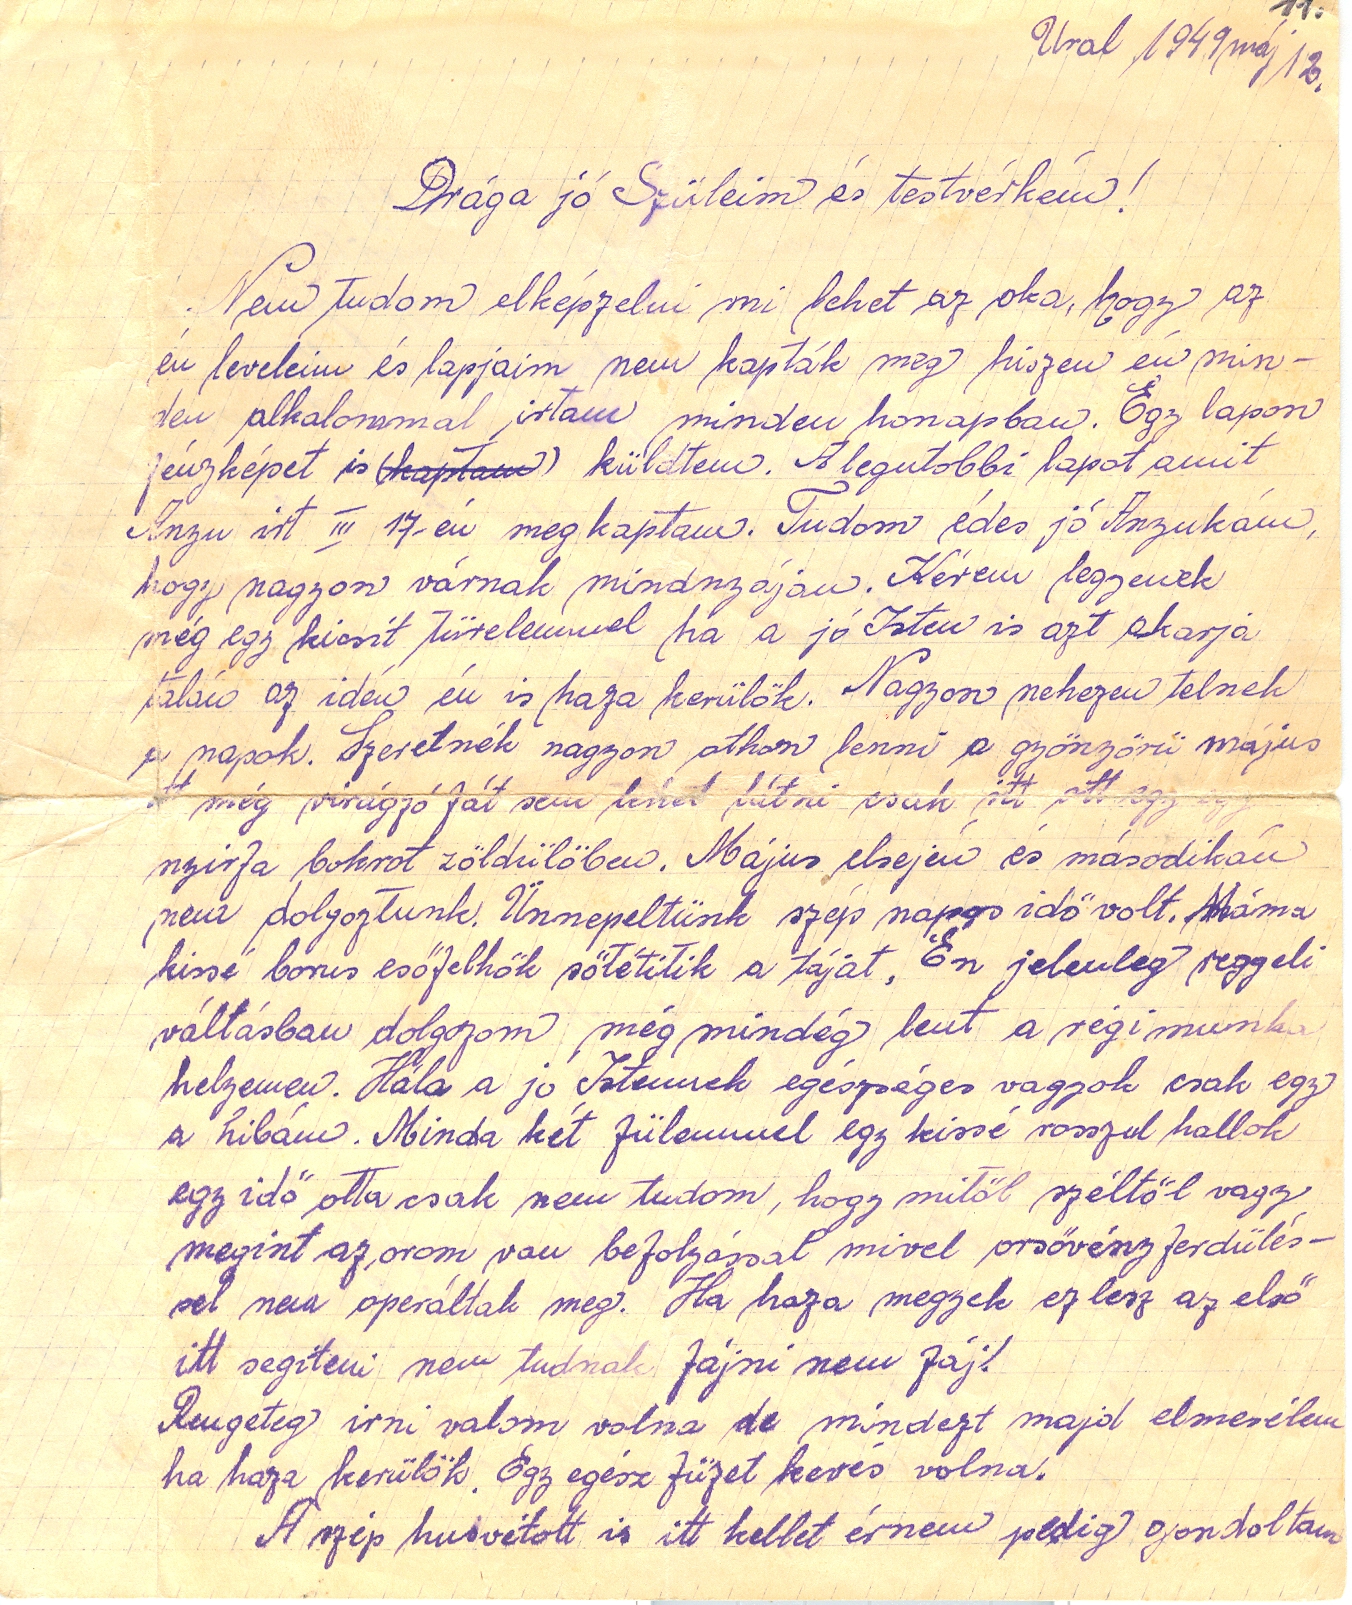 11.
Ural 1949 máj 12.
Drága jó Szüleim és testvérkém!
Nem tudom elképzelni mi lehet az oka, hogy az
én leveleim és lapjaim nem kapták meg hiszen én min-
den alkalommal irtam minden honapban. Egy lapon
fényképet is (kaptam) küldtem. A legutobbi lapot amit
Anyu irt III 17-én megkaptam. Tudom édes jó Anyukám,
hogy nagyon várnak mindnyájan. Kérem legyenek
még egy kicsit türelemmel ha a jó Isten is azt akarja
talán az idén én is haza kerülök. Nagyon nehezen telnek
a napok. Szeretnék nagyon othon lenni a gyönyörü május
itt még virágzó fát sem lehet látni csak itt ott egy egy
nyirfa bokrot zöldülöben. Május elsején és másodikán
nem dolgoztunk. Ünnepeltünk szép napos idő volt. Máma
kissé borus esőfelhők sötétitik a tájat. Én jelenleg reggeli
váltásban dolgozom még mindég lent a régi munka
helyemen. Hála a jó Istennek egészséges vagyok csak egy
a hibám. Minda két fülemmel egy kissé rosszul hallok
egy idő otta csak nem tudom, hogy mitől széltől vagy
megint az orom van befolyással mivel orsövény ferdülés-
sel nem operáltak meg. Ha haza megyek ez lesz az első
itt segiteni nem tudnak fájni nem fáj!
Rengeteg irni valom volna de mindezt majd elmesélem
ha haza kerülök. Egy egész füzet kevés volna.
A szép husvétott is itt kellet érnem pedig gondoltam